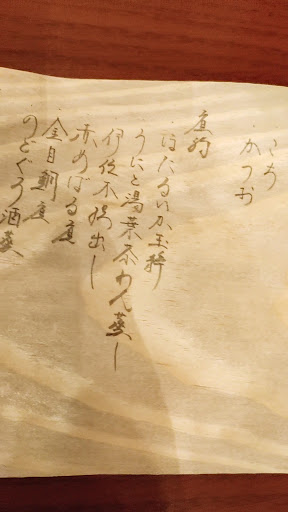 かつお
煮物
ほたるいか玉締
うにと湯葉茶わん蒸し
伊佐木揚出し
赤めばる煮
金目鯛煮
のどぐろ酒蒸